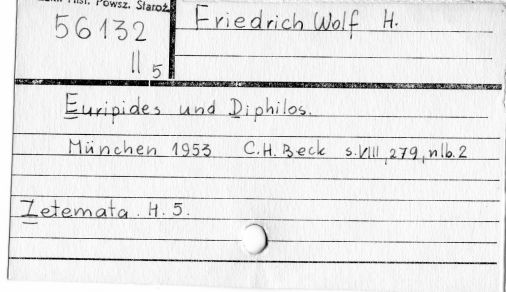 Hist. Powsz. Staroż.
56132
II 5
Friedrich Wolf H.
Euripides und Diphilos.
München 1953 C.H. Beck s. VIII, 279, nlb. 2
Zetemata. H. 5.